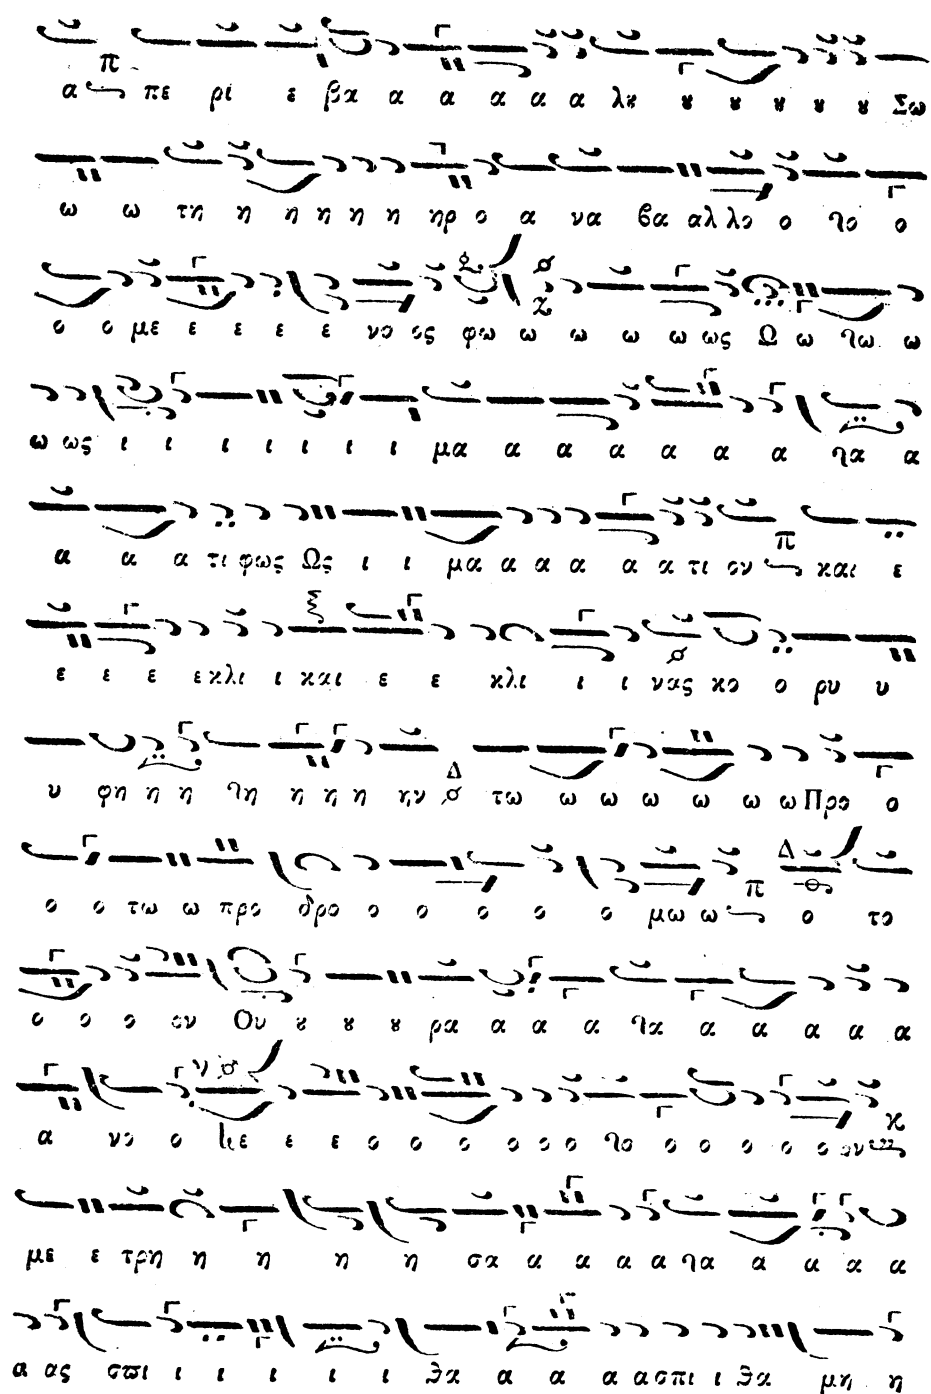 α πε ρι ε βα α α α α α λȣ ȣ ȣ ȣ ȣ ȣ Σω
ω ω τη η η η η η ηρ ο α να βα αλ λο ο το ο
ο ο με ε ε ε ε νο ος φω ω ω ω ω ως Ω ω τω ω
ω ως ι ι ι ι ι ι ι μα α α α α α α τα α
α α α τι φως Ως ι ι μα α α α α α τι ον και ε
ε ε ε ε κλι ι και ε ε κλι ι ι νας κο ο ρυ υ
υ φη η η τη η η η ην τω ω ω ω ω ω ω Προ ο
ο ο τω ω προ δρο ο ο ο ο ο μω ω ο το
ο ο ο ον Ου ȣ ȣ ȣ ρα α α α τα α α α α α
α νο ο ε ε ε ο ο ο ο ο ο το ο ο ο ο ο ον
με ε τρη η η η η σα α α α α τα α α α α
α ας σπι ι ι ι ι ι θα α α α α σπι ι θα μη η